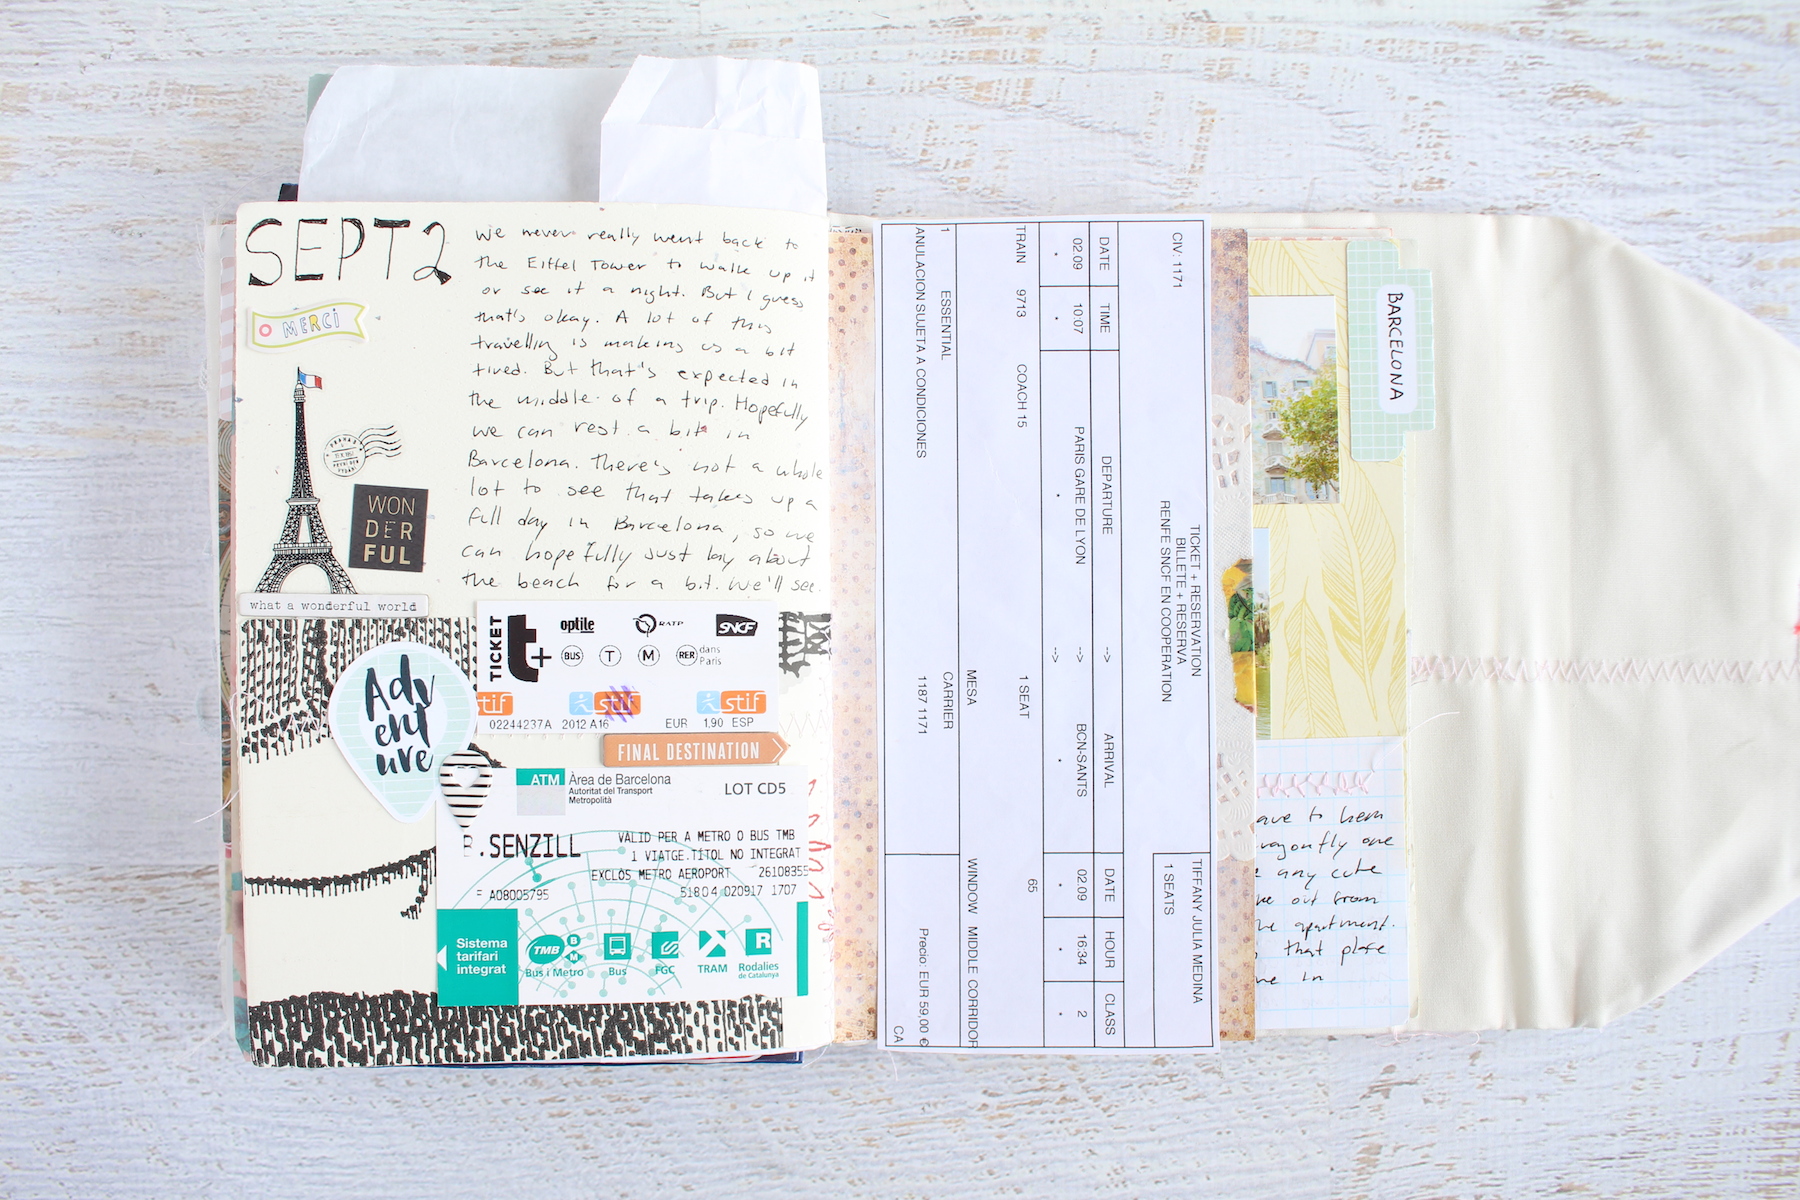 SEPT 2
We never really went back to
the Eiffel Tower to walk up it
or see it a night. But I guess
that's okay. A lot of this
travelling is making us a bit
tired. But that's expected in
the middle of a trip. Hopefully
we can rest a bit in
Barcelona. There's not a whole
lot to see that takes up a
full day in Barcelona, so we
can hopefully just lay about
the beach for a bit. We'll see.
MERCI
PRAHA
WON
DER
FUL
what a wonderful world
Adv
ent
ure
TICKET
t+
optile
RATP
SNCF
BUS
T
M
RER
dans
Paris
stif
stif
stif
02244237A 2012 A16 EUR 1.90 ESP
FINAL DESTINATION
ATM
Àrea de Barcelona
Autoritat del Transport
Metropolità
LOT CD5
B.SENZILL
VALID PER A METRO O BUS TMB
1 VIATGE.TÍTOL NO INTEGRAT
EXCLÒS METRO AEROPORT 26108355
F A08005795 51804 020917 1707
Sistema
tarifari
integrat
TMB
B
M
Bus i Metro
Bus
FGC
TRAM
R
Rodalies
de Catalunya
CIV: 1171
TICKET + RESERVATION
BILLETE + RESERVA
RENFE SNCF EN COOPERATION
TIFFANY JULIA MEDINA
1 SEATS
DATE TIME DEPARTURE -> ARRIVAL DATE HOUR CLASS
02.09 10:07 PARIS GARE DE LYON -> BCN-SANTS 02.09 16:34 2
* * * -> * * * *
TRAIN 9713 COACH 15 1 SEAT 65
MESA WINDOW MIDDLE CORRIDOR
ESSENTIAL CARRIER
1 ANULACION SUJETA A CONDICIONES 1187 1171 Precio: EUR 59,00 €
CA
BARCELONA
ave to hem
ragonfly one
any cute
out from
he apartment.
that place
in